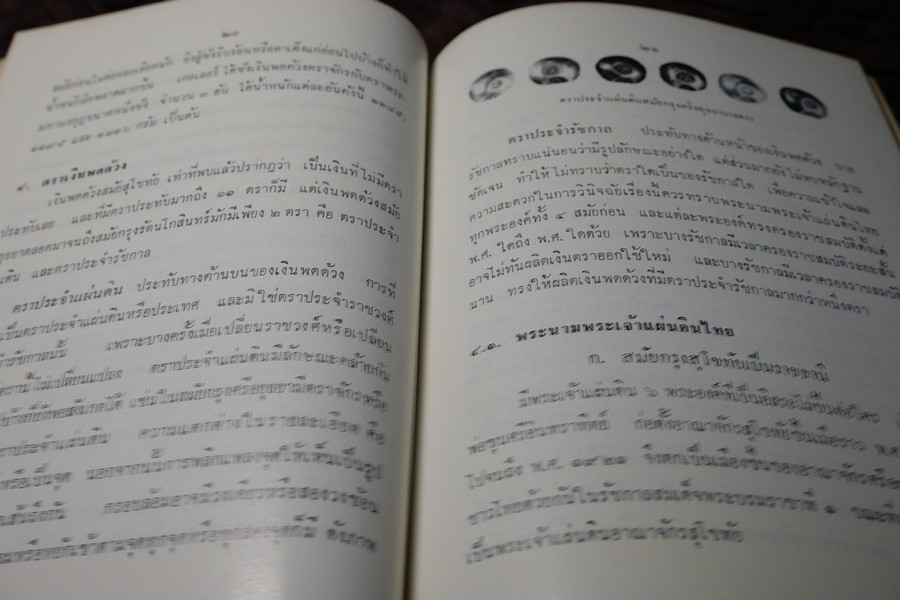 ๒๐
น้ำหนักผิดพลาดมากขึ้น เกทเลอร์ ได้ชั่งเงินพดด้วงตราจักรกับตราพระ-
มหามงกุฎขนาดหนึ่งชั่ง จำนวน ๓ อัน ได้น้ำหนักแต่ละอันดังนี้
และ ๑๒๑๖ กรัม เป็นต้น
๔. ตราเงินพดด้วง
เงินพดด้วงสมัยสุโขทัย เท่าที่พบแล้วปรากฏว่า เป็นเงินที่ไม่มีตรา
ประทับเลย และที่มีตราประทับมากถึง ๑๑ ตราก็มี แต่เงินพดด้วงสมัย
ยุธยาตลอดมาจนถึงสมัยกรุงรัตนโกสินทร์มักมีเพียง ๒ ตรา คือ ตราประจำ
ดิน และตราประจำรัชกาล
ตราประจำแผ่นดิน ประทับทางด้านบนของเงินพดด้วง การที่
เป็นตราประจำแผ่นดินหรือประเทศ และมิใช่ตราประจำราชวงศ์
รัชกาลนั้น เพราะบางครั้งเมื่อเปลี่ยนราชวงศ์หรือเปลี่ยน
ตราก็ไม่เปลี่ยนแปลง ตราประจำแผ่นดินมีลักษณะคล้ายกัน
บ้างก็ยังพอสังเกตได้ เช่นในสมัยกรุงศรีอยุธยามีตราจักรหรือ
ราประจำแผ่นดิน ความแตกต่างในรายละเอียด คือ
หรือเป็นจุด นอกจากนั้นการพลิกแพลงจุดให้เห็นเป็นรูป
เส้นถึงกัน กรอบล้อมอาจมีวงเดียวหรือสองวงซ้อน
๒๑
ตราประจำแผ่นดินสมัยกรุงศรีอยุธยาบางตรา
ตราประจำรัชกาล ประทับทางด้านหน้าของเงินพดด้วง บาง
รัชกาลทราบแน่นอนว่ามีรูปลักษณะอย่างใด แต่ส่วนมากยังไม่พบหลักฐาน
ชัดเจน ทำให้ไม่ทราบว่าตราใดเป็นของรัชกาลใด เพื่อความเข้าใจและ
ความสะดวกในการวินิจฉัยเรื่องนี้ควรทราบพระนามพระเจ้าแผ่นดินไทย
ทุกพระองค์ทั้ง ๔ สมัยก่อน และแต่ละพระองค์ทรงครองราชสมบัติตั้งแต่
พ.ศ. ใดถึง พ.ศ. ใดด้วย เพราะบางรัชกาลมีเวลาครองราชสมบัติระยะสั้น
อาจไม่ทันผลิตเงินตราออกใช้ใหม่ และบางรัชกาลมีเวลาครองราชสมบัติ
นาน ทรงให้ผลิตเงินพดด้วงที่มีตราประจำรัชกาลมากกว่าหนึ่งตรา
๔.๑. พระนามพระเจ้าแผ่นดินไทย
ก. สมัยกรุงสุโขทัยเป็นราชธานี
มีพระเจ้าแผ่นดิน ๖ พระองค์ที่เป็นอิสระไม่ขึ้นต่อใคร
พ่อขุนศรีอินทราทิตย์ ก่อตั้งอาณาจักรสุโขทัยขึ้นเมื่อราว พ.ศ.
ไปจนถึง พ.ศ. ๑๙๒๑ จึงตกเป็นเมืองขึ้นของอาณาจักรศรีอยุ
ชาวไทยด้วยกันในรัชกาลสมเด็จพระบรมราชาที่ ๑
เป็นพระเจ้าแผ่นดินอาณาจักรสุโขทัย